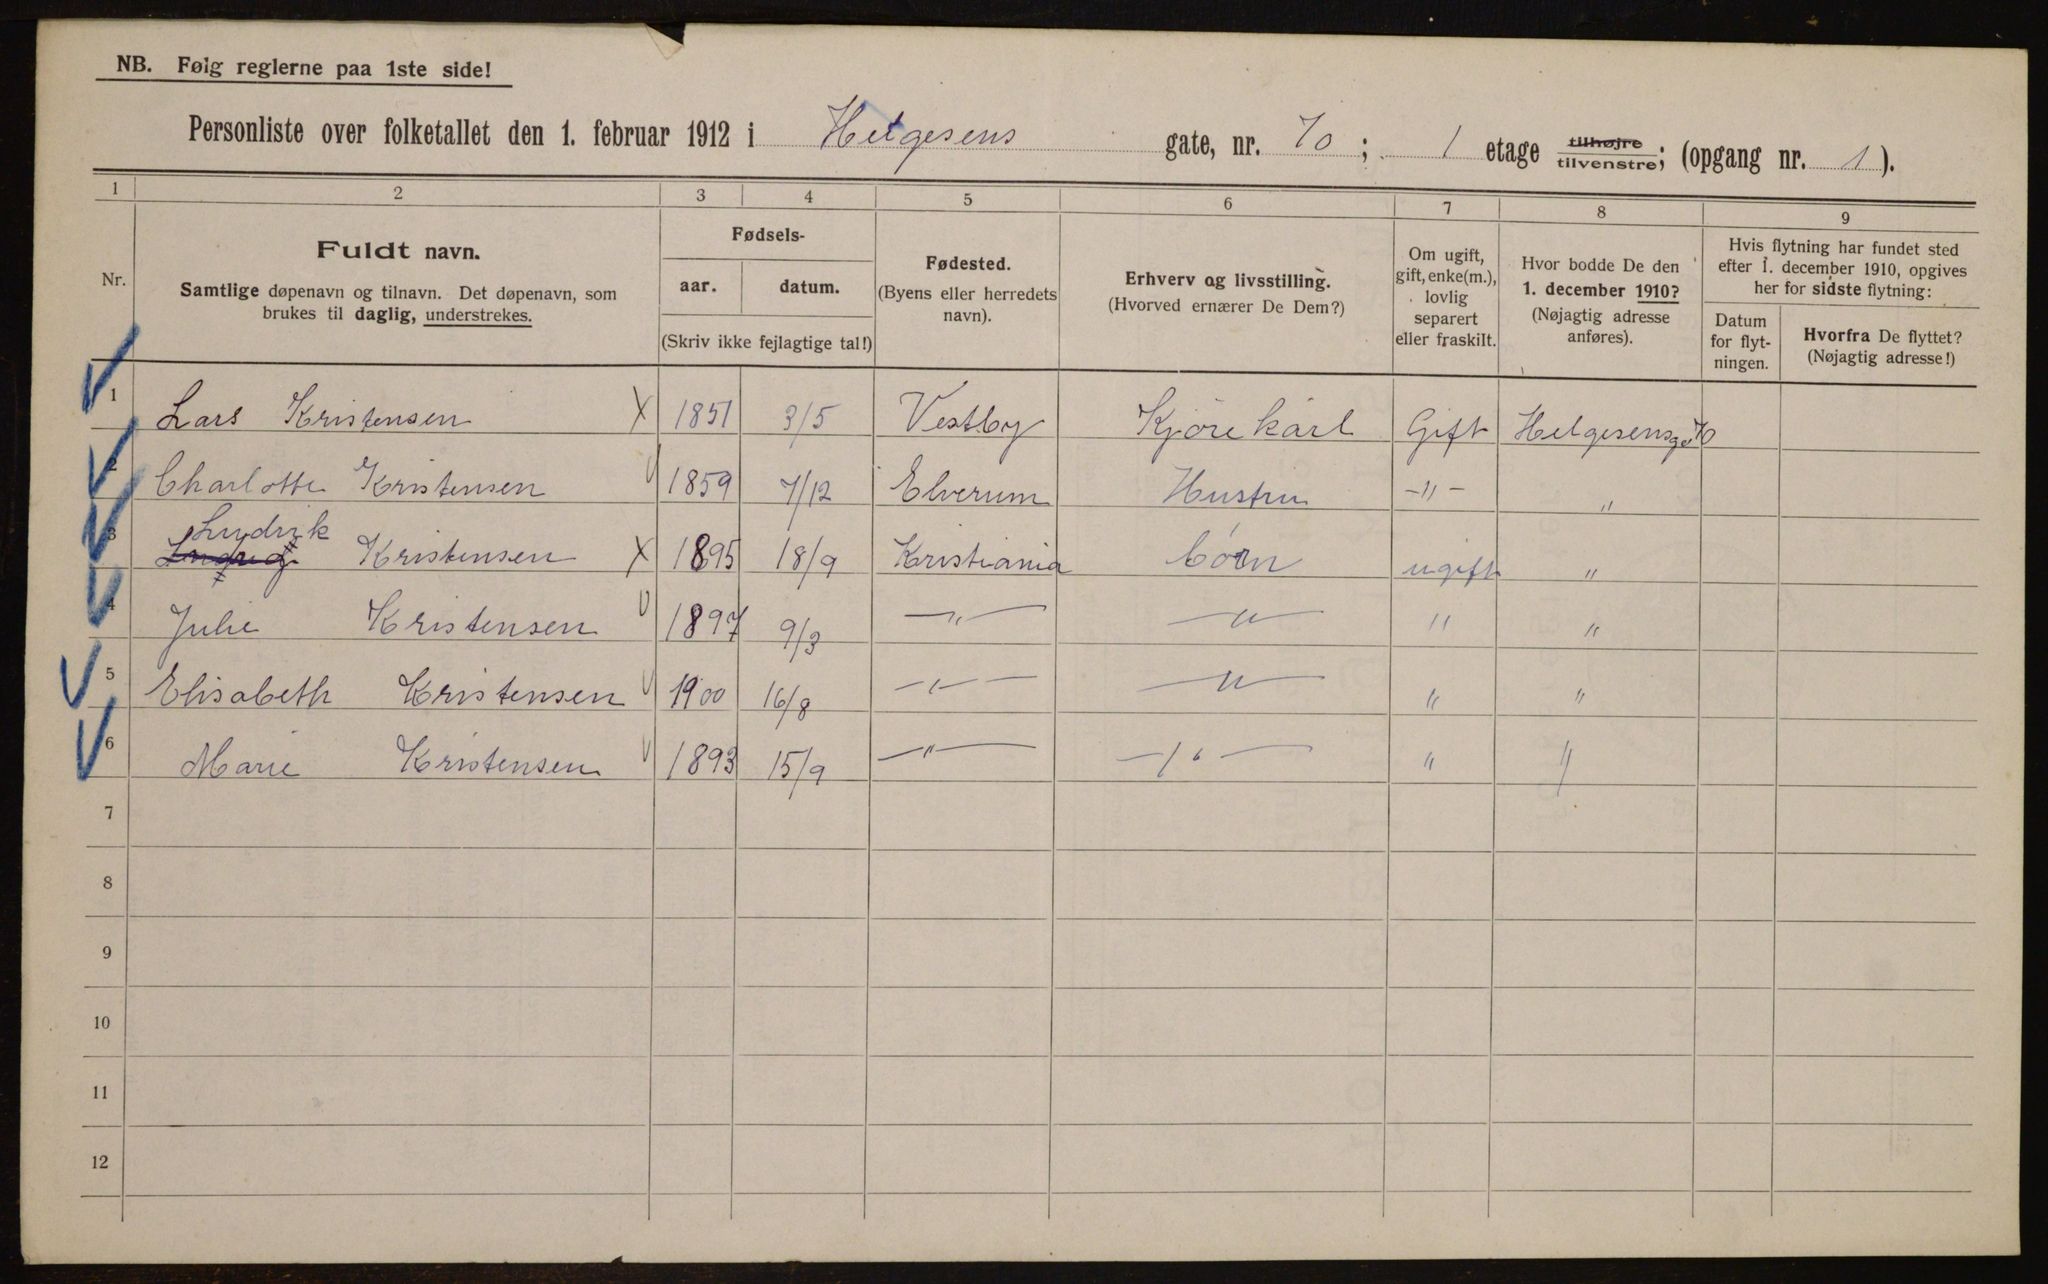 NB. Følg reglerne paa 1ste side!
Personliste over folketallet den 1. februar 1912 i Helgesens gate, nr. 70; 1 etage tilhøjre tilvenstre; (opgang nr. 1).
1 2 3 4 5 6 7 8 9
Nr.
Fuldt navn.
Samtlige døpenavn og tilnavn. Det døpenavn, som
brukes til daglig, understrekes.
Fødsels-
aar. datum.
(Skriv ikke fejlagtige tal!)
Fødested.
(Byens eller herredets
navn).
Erhverv og livsstilling.
(Hvorved ernærer De Dem?)
Om ugift,
gift, enke(m.),
lovlig
separert
eller fraskilt.
Hvor bodde De den
1. december 1910?
(Nøjagtig adresse
anføres).
Hvis flytning har fundet sted
efter 1. december 1910, opgives
her for sidste flytning:
Datum
for flyt-
ningen.
Hvorfra De flyttet?
(Nøjagtig adresse!)
1 Lars Kristensen X 1851 3/5 Vestby Kjørekarl Gift Helgesensg. 70
2 Charlotte Kristensen 1859 7/12 Elverum Hustru -"- "
Ludvik
3 Kristensen X 1895 18/9 Kristiania børn ugift "
4 Julie Kristensen 1897 9/3 -"- -"- " "
5 Elisabeth Kristensen 1900 16/8 -"- -"- " "
6 Marie Kristensen 1893 15/9 -"- -"- " "
7
8
9
10
11
12